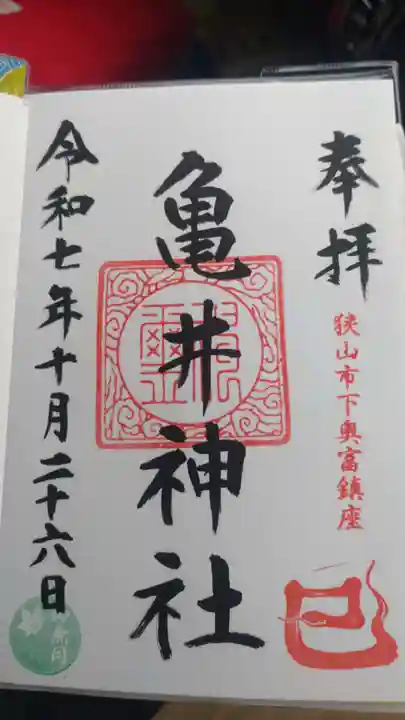 奉拝
狭山市下奥富鎮座
巳
亀井神社
令和七年十月二十六日